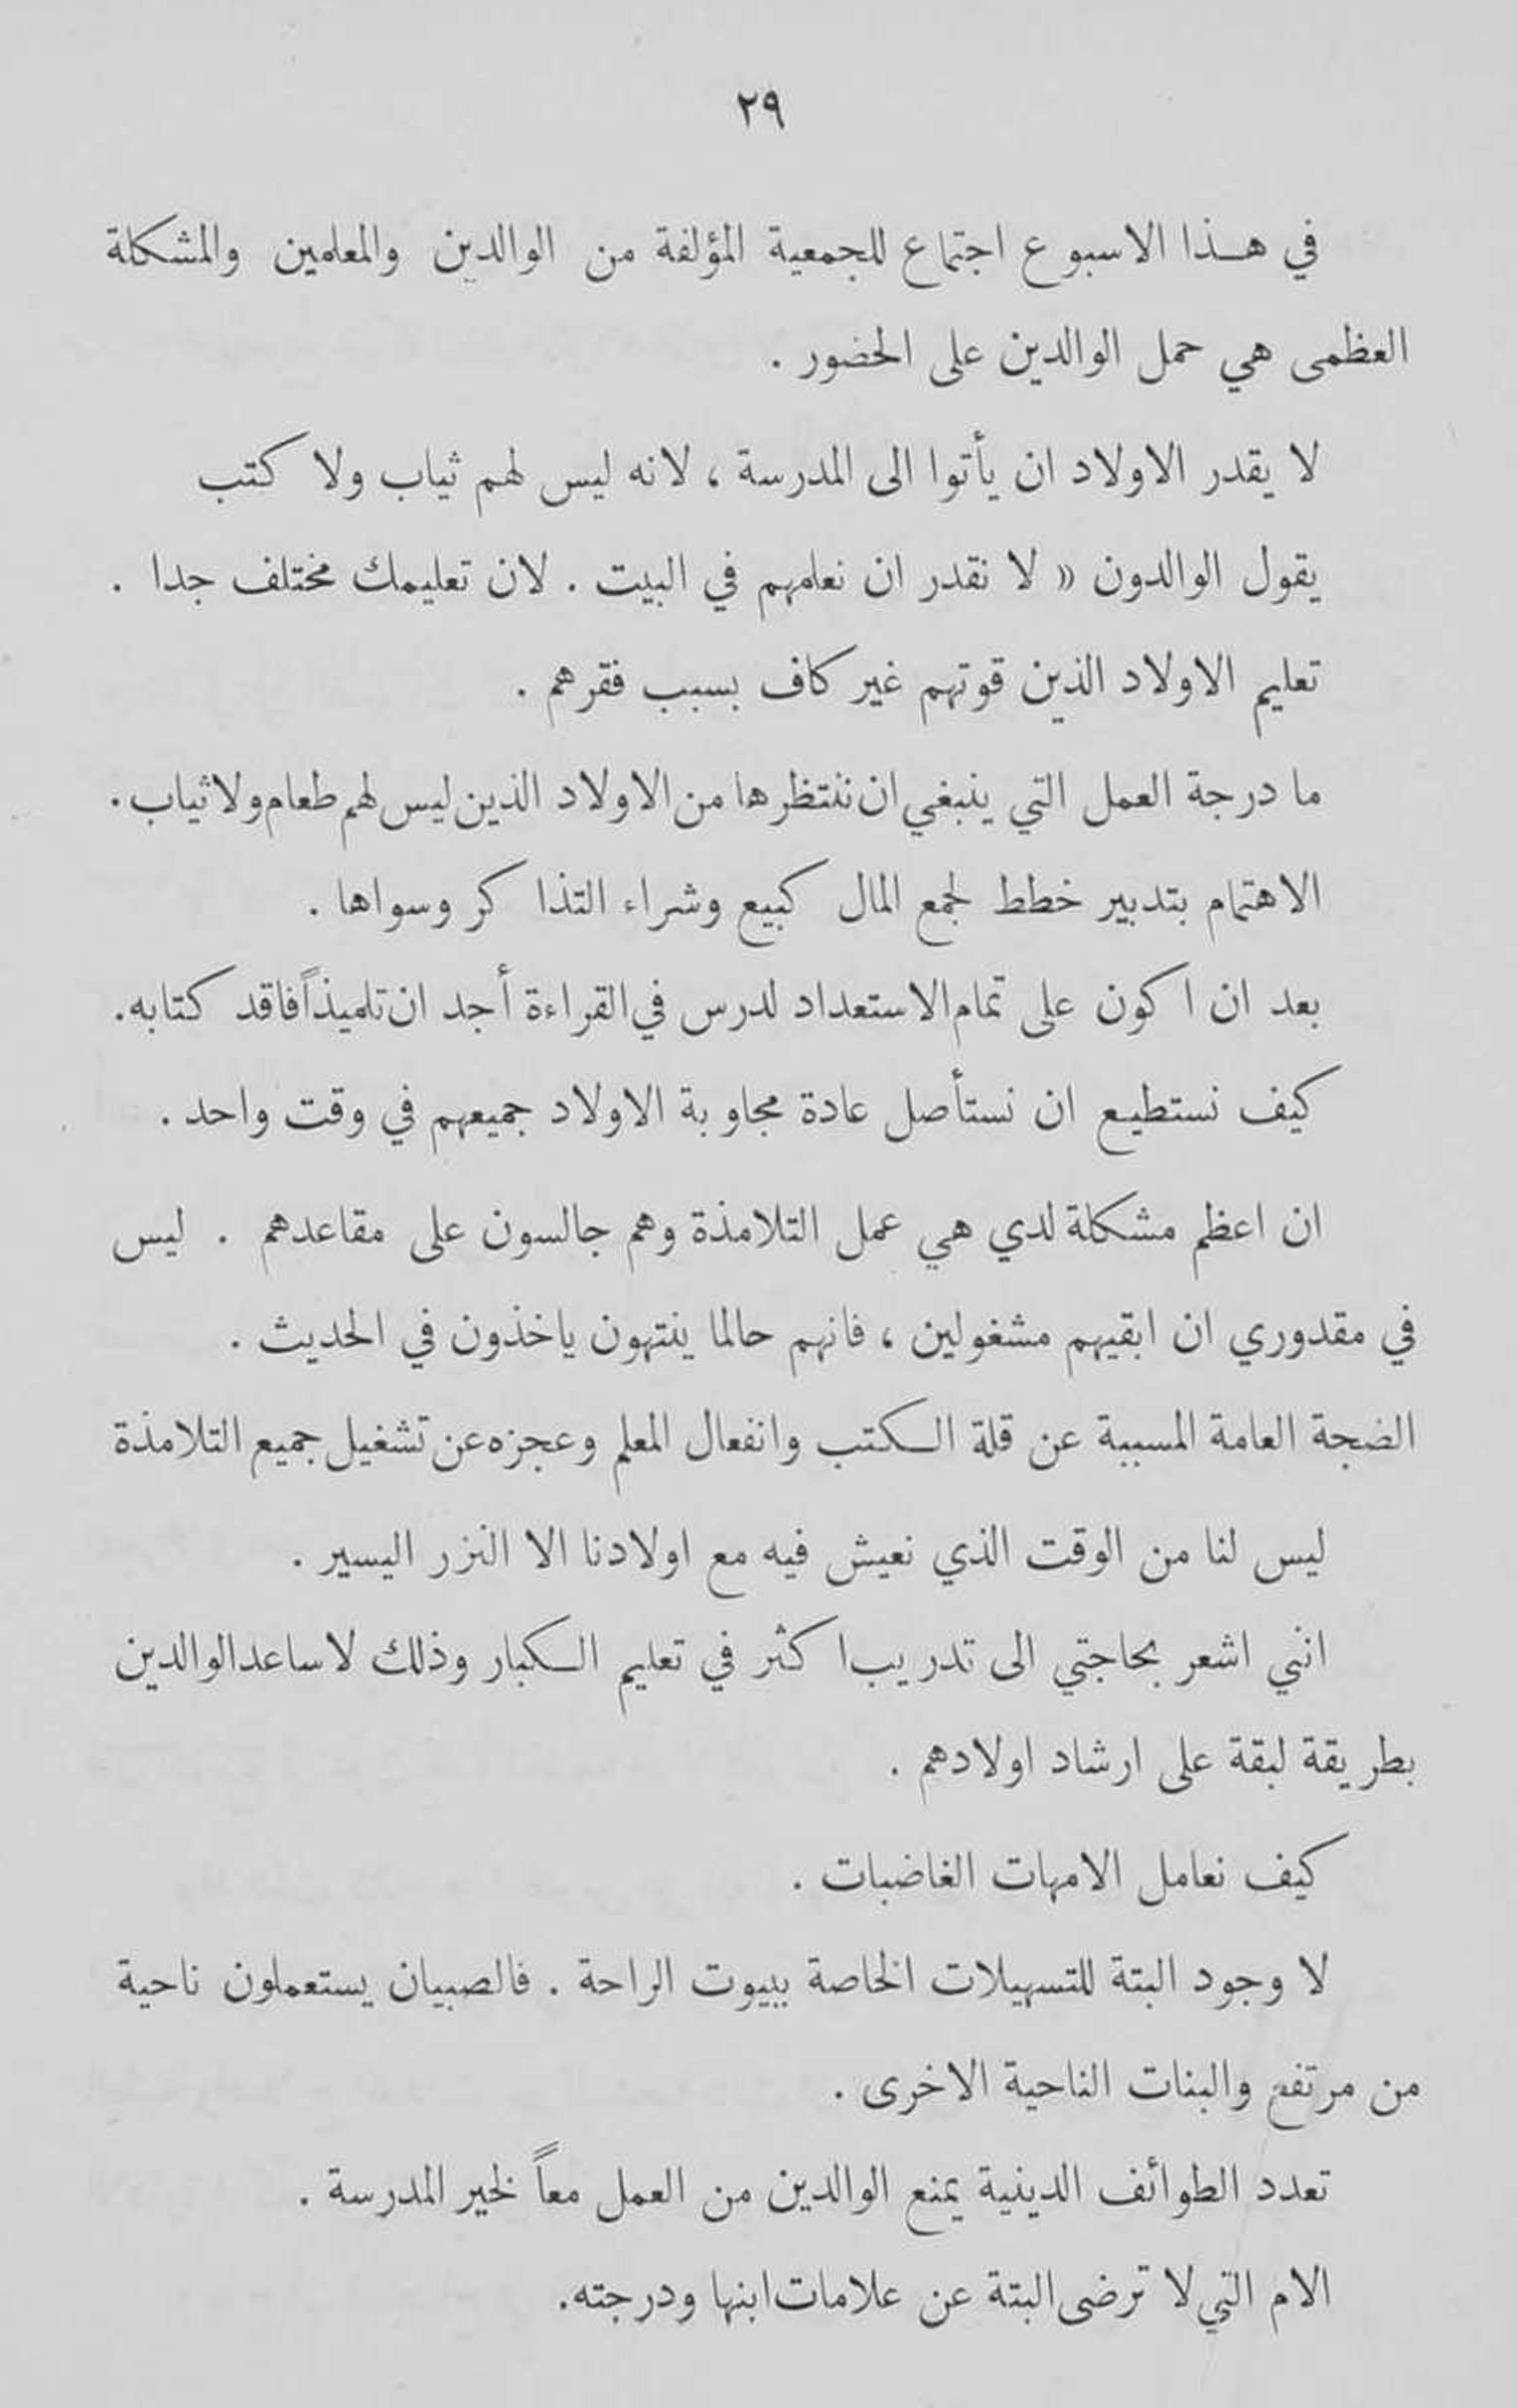 ٢٩
في هذا الاسبوع اجتماع للجمعية المؤلفة من الوالدين والمعلمين والمشكلة
العظمى هي حمل الوالدين على الحضور .
لا يقدر الاولاد ان يأتوا الى المدرسة ، لانه ليس لهم ثياب ولا كتب
يقول الوالدون « لا نقدر ان نعلمهم في البيت . لان تعليمك مختلف جدا .
تعليم الاولاد الذين قوتهم غير كاف بسبب فقرهم .
ما درجة العمل التي ينبغي ان ننتظرها من الاولاد الذين ليس لهم طعام ولا ثياب .
الاهتمام بتدبير خطط لجمع المال كبيع وشراء التذا كر وسواها .
بعد ان اكون على تمام الاستعداد لدرس في القراءة أجد ان تلميذاً فاقد كتابه.
كيف نستطيع ان نستأصل عادة مجاوبة الاولاد جميعهم في وقت واحد .
ان اعظم مشكلة لدي هي عمل التلامذة وهم جالسون على مقاعدهم . ليس
في مقدوري ان ابقيهم مشغولين ، فانهم حالما ينتهون ياخذون في الحديث .
الضجة العامة المسببة عن قلة الكتب وانفعال المعلم وعجزه عن تشغيل جميع التلامذة
ليس لنا من الوقت الذي نعيش فيه مع اولادنا الا النزر اليسير .
انني اشعر بحاجتي الى تدريب اكثر في تعليم الكبار وذلك لاساعد الوالدين
بطريقة لبقة على ارشاد اولادهم .
كيف نعامل الامهات الغاضبات .
لا وجود البتة للتسهيلات الخاصة ببيوت الراحة . فالصبيان يستعملون ناحية
من مرتفع والبنات الناحية الاخرى .
تعدد الطوائف الدينية يمنع الوالدين من العمل معاً لخير المدرسة .
الام التي لا ترضى البتة عن علامات ابنها ودرجته.